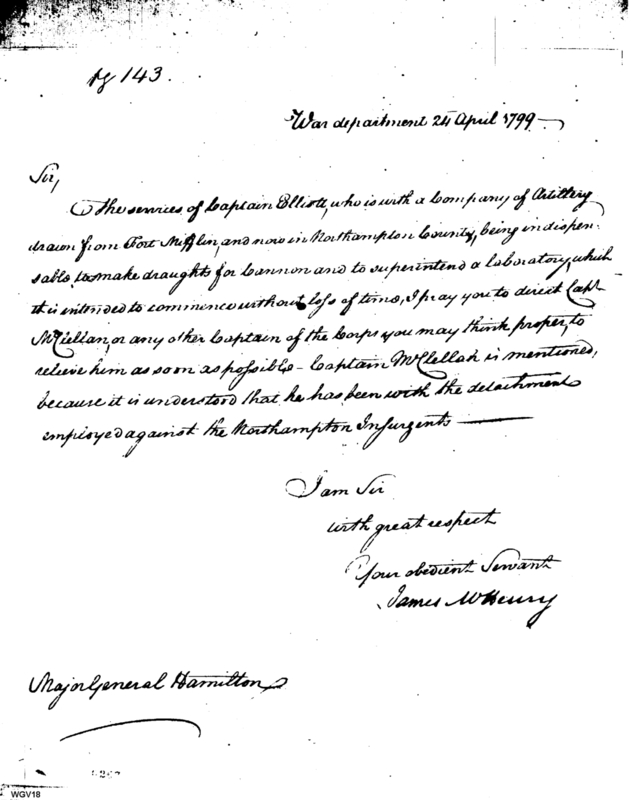 pg 143.
War department 24 April 1799
Sir,
The services of Captain Elliott, who is with a Company of Artillery
drawn from Fort Mifflin, and now in Northampton County, being indispen-
sable to make draughts for Cannon and to superintend a laboratory, which
it is intended to commence without loss of time, I pray you to direct Capt
McClellan, or any other Captain of the Corps you may think proper, to
relieve him as soon as possible - Captain McClellan is mentioned,
because it is understood that he has been with the detachment
employed against the Northampton Insurgents
I am Sir
with great respect
Your obedient Servant
James McHenry
Major General Hamilton
WGV18